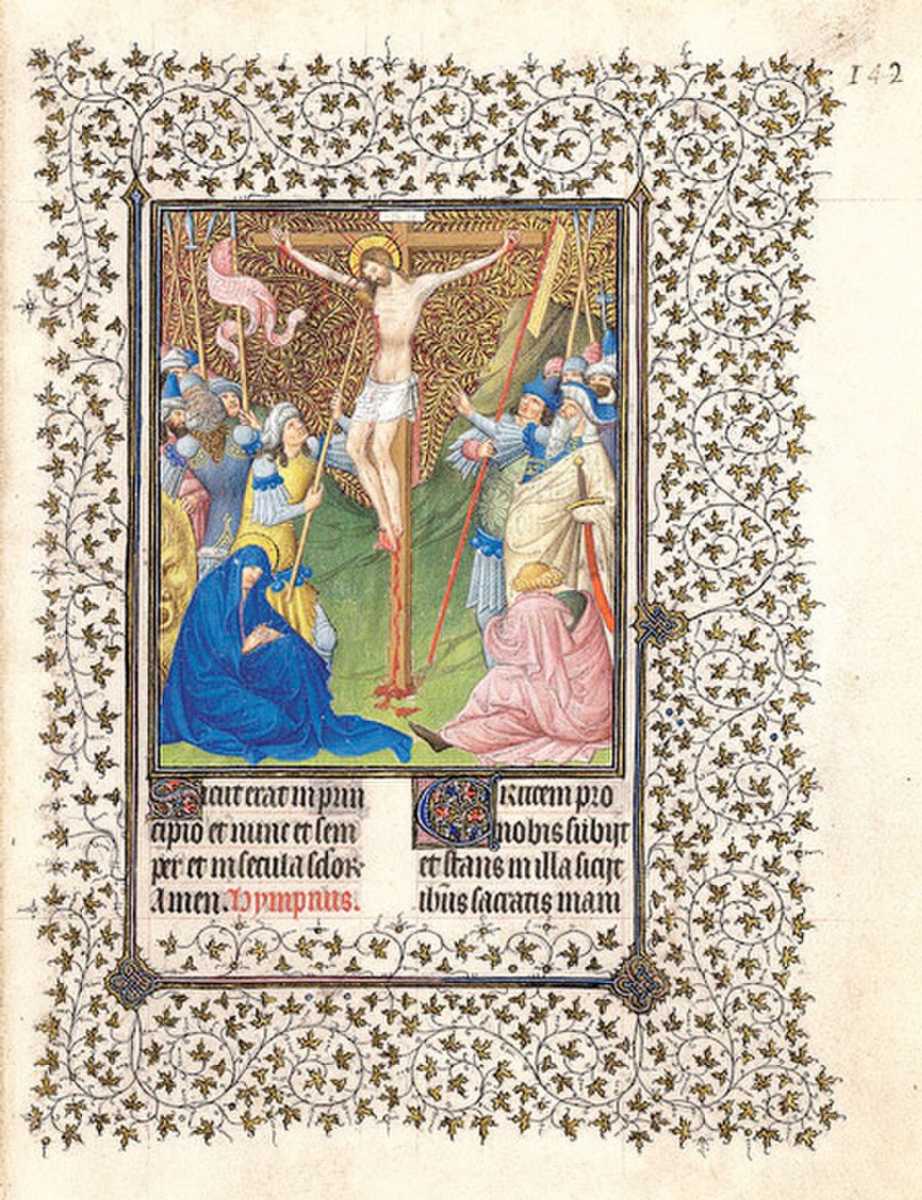 142
Sicut erat in prin
cipio et nunc et sem
per et in secula sclor
Amen. Hympnus.
Crucem pro
nobis subijt
et stans in illa sicijt
ihus sacratis mani